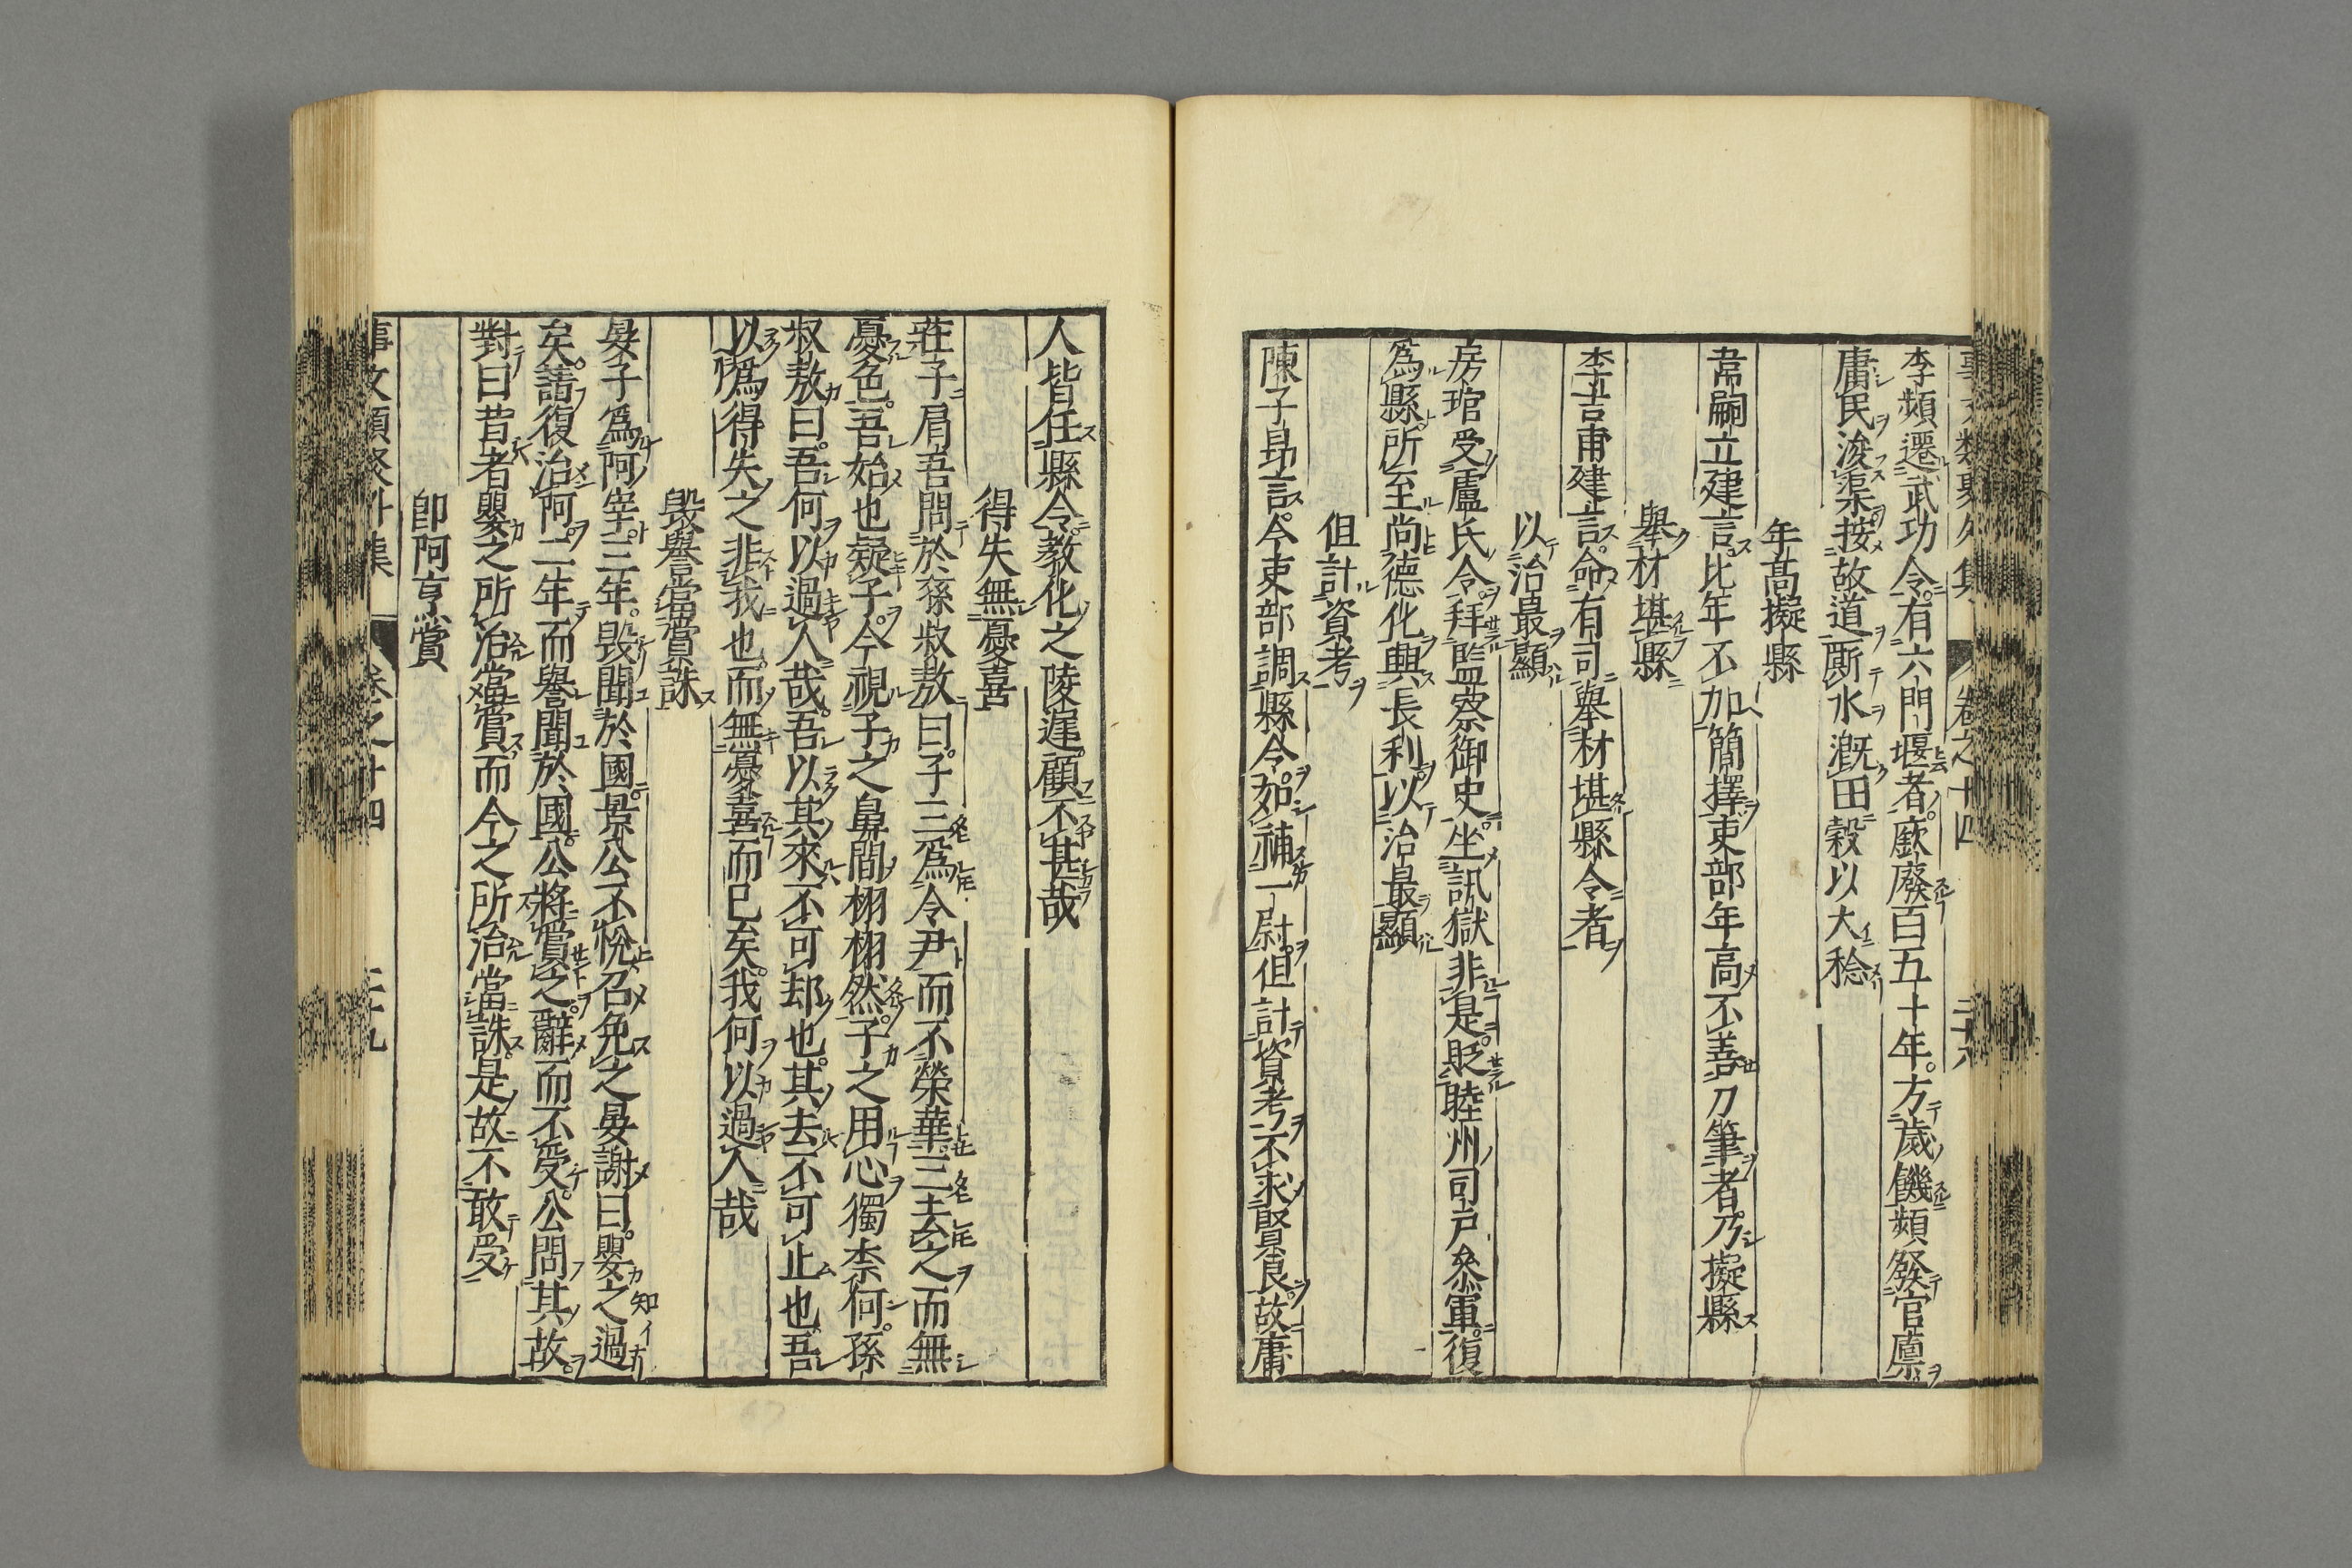 李頻遷武功令有六門堰者廢廢百五十年方歲饑頻發官廪
庸民浚渠按故道厮水漑田穀以大稔
年髙擬縣
韋嗣立建言比年不加簡擇吏部年高不善刀筆者乃擬縣
舉材堪縣
李吉甫建言命有司舉材堪縣令者
以治最顯
房琯受盧氏令拜監察御史坐訊獄非是貶睦州司戸叅軍復
爲縣所至尚德化興長利以治最顯
但計資考
陳子昻言今吏部調縣令如補一尉但計資考不求賢良故庸
人皆任縣令教化之陵遟顧不甚哉
得失無憂喜
莊子肩吾問於孫叔敖曰子三爲令尹而不榮華三去之而無
憂色吾始也疑子今視子之鼻間栩栩然子之用心獨柰何孫
叔敖曰吾何以過人哉吾以其來不可却也其去不可止也吾
以爲得失之非我也而無憂喜而已矣我何以過人哉
毀譽當賞誅
晏子爲阿宰三年毀聞於國景公不悅召免之晏謝曰嬰之過
矣請復治阿二年而譽聞於國公將賞之辭而不受公問其故
對曰昔者嬰之所治當賞而今之所治當誅是故不敢受
卽阿亨賞
事文類聚外集 卷之十四 二十九